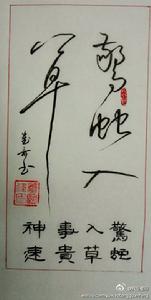 驚蛇入
草
驚蛇
入草
事貴
神速